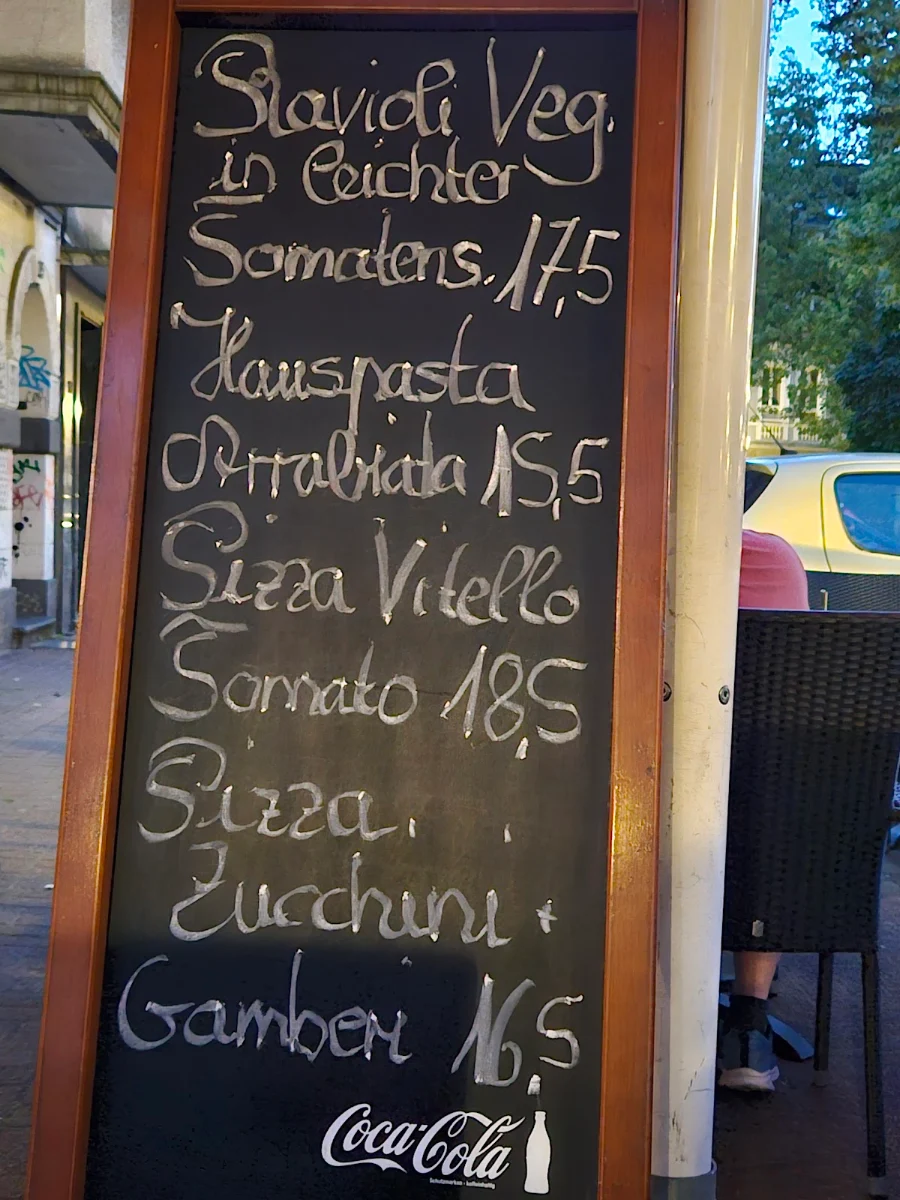 Ravioli Veg.
in leichter
Tomatens. 17,5
Hauspasta
Arrabiata 15,5
Pizza Vitello
Tomato 18,5
Pizza
Zucchini +
Gamberi 16,5
Coca-Cola